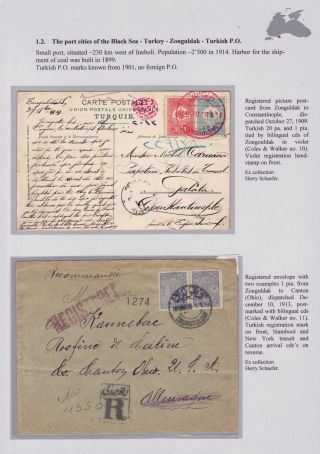 1.2. The port cities of the Black Sea - Turkey - Zonguldak - Turkish P.O.
Small port, situated ~230 km west of Ineboli. Population ~2'500 in 1914. Harbor for the ship-
ment of coal was built in 1899.
Turkish P.O. marks known from 1901, no foreign P.O.
CARTE POSTALE
TURQUIE
Constantinople
Registered picture post-
card from Zonguldak to
Constantinople, dis-
patched October 27, 1909.
Turkish 20 pa. and 1 pia.
tied by bilingual cds of
Zonguldak in violet
(Coles & Walker no. 10).
Violet registration hand-
stamp on front.
Ex collection
Herry Schaefer.
Recommandée
REGISTERED
1274
U.S.A.
Allemagne
R
Registered envelope with
two examples 1 pia. from
Zonguldak to Canton
(Ohio), dispatched De-
cember 10, 1913, post-
marked with bilingual cds
(Coles & Walker no. 11).
Turkish registration mark
on front, Stamboul and
New York transit and
Canton arrival cds's on
reverse.
Ex collection
Herry Schaefer.